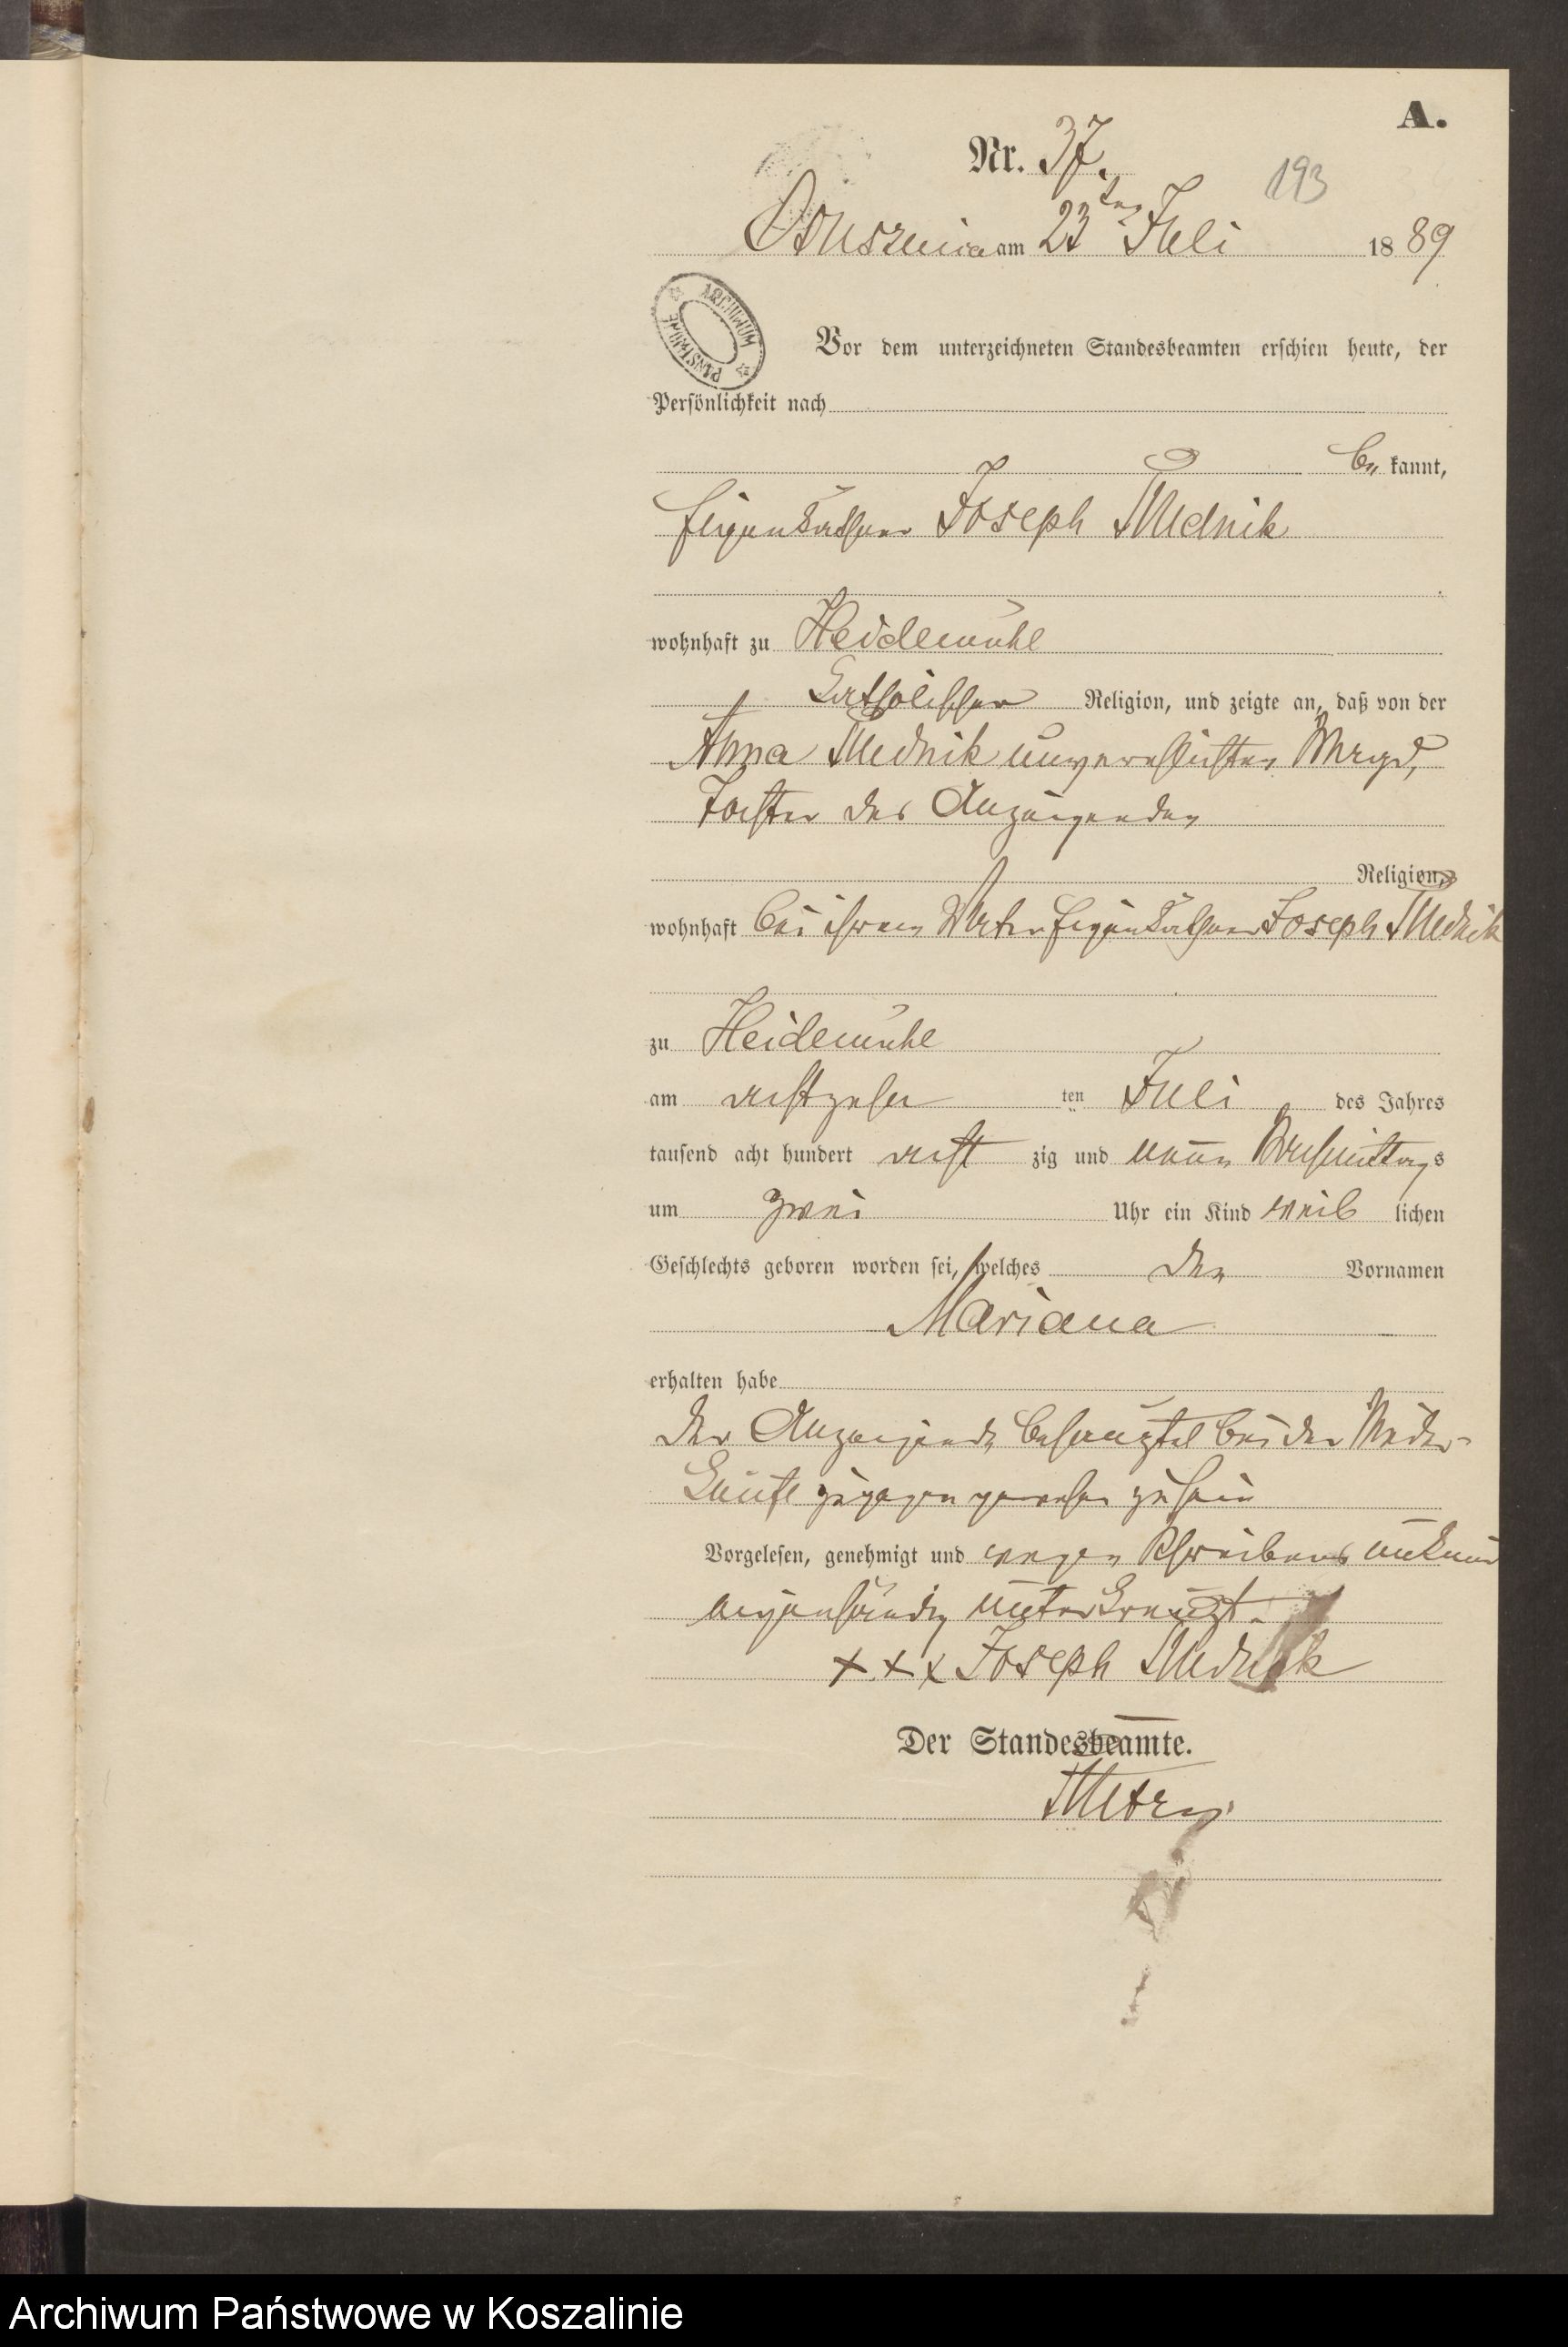 A.
Nr. 37.
193
Ossuszenica am 23ten Juli 1889
ARCHIWUM PAŃSTWOWE
Vor dem unterzeichneten Standesbeamten erschien heute, der
Persönlichkeit nach
be kannt,
Eigenkäthner Joseph Mednik
wohnhaft zu Heidemühl
katholischer Religion, und zeigte an, daß von der
Anna Mednik unverehlichten Magd,
Tochter des Anzeigenden
Religion,
wohnhaft bei ihrem Vater Eigenkäthner Joseph Mednik
zu Heidemühl
am achtzehn ten Juli des Jahres
tausend acht hundert acht zig und neun Nachmittags
um zwei Uhr ein Kind weib lichen
Geschlechts geboren worden sei, welches den Vornamen
Mariana
erhalten habe
Der Anzeigende behauptet bei der Nieder-
kunft zugegen gewesen zu sein
Vorgelesen, genehmigt und wegen Schreibens unkund
eigenhändig unterkreuzt.
+ + + Joseph Mednik
Der Standesbeamte.
Archiwum Państwowe w Koszalinie